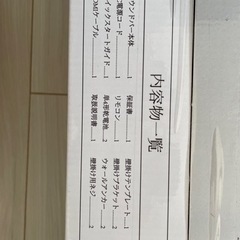 内容物一覧
ウンドバー本体……1
C電源コード……1
イックスタートガイド……1
DMIケーブル……1
保証書……1
リモコン……1
単4形乾電池……2
取扱説明書……1
壁掛けテンプレート……1
壁掛けブラケット……2
ウォールアンカー……2
壁掛け用ネジ……2